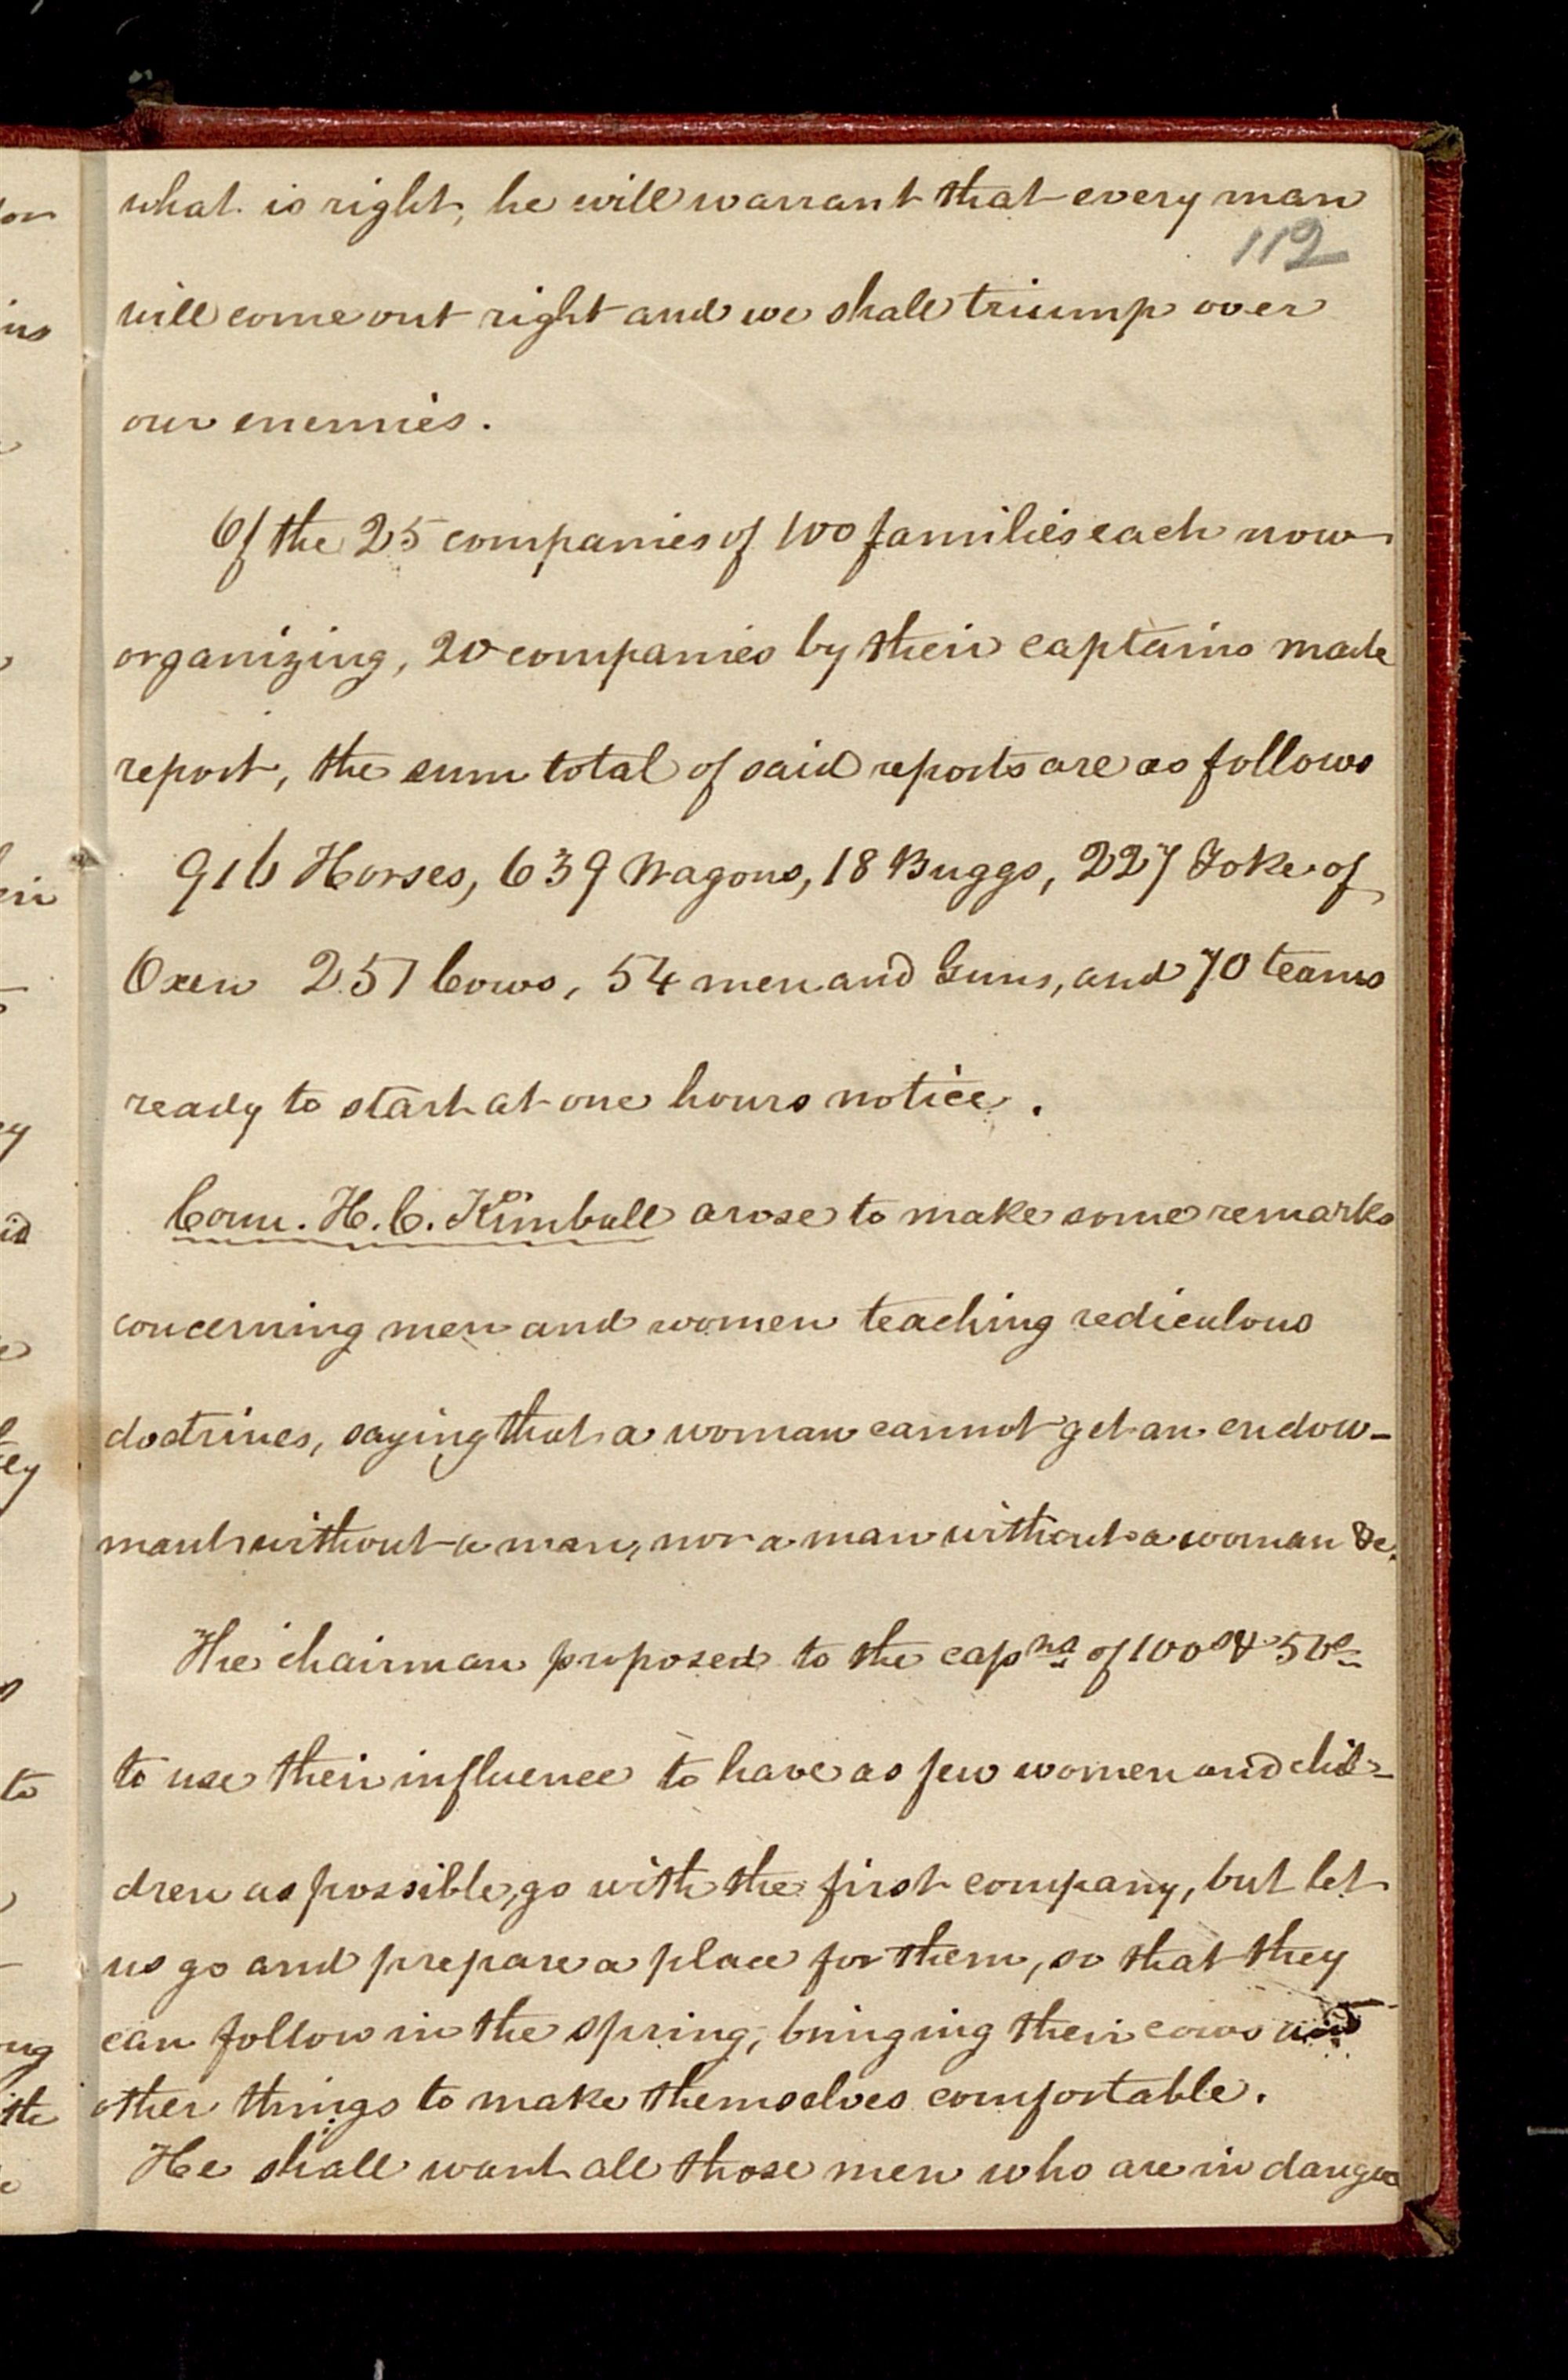 what is right, he will warrant that every man
112
will come out right and we shall triump over
our enemies.
Of the 25 companies of 100 families each now
organizing, 20 companies by their captains made
report, the sum total of said reports are as follows
916 Horses, 639 Wagons, 18 Buggs, 227 Yoke of
Oxen 257 Cows, 54 men and Guns, and 70 teams
ready to start at one hours notice.
Coun. H. C. Kimball arose to make some remarks
concerning men and women teaching rediculous
doctrines, saying that a woman cannot get an endow-
ment without a man, nor a man without a woman &c.
The chairman proposed to the capns of 100s & 50s
to use their influence to have as few women and chil-
dren as possible, go with the first company, but let
us go and prepare a place for them, so that they
can follow in the spring, bringing their cows and
other things to make themselves comfortable.
He shall want all those men who are in danger